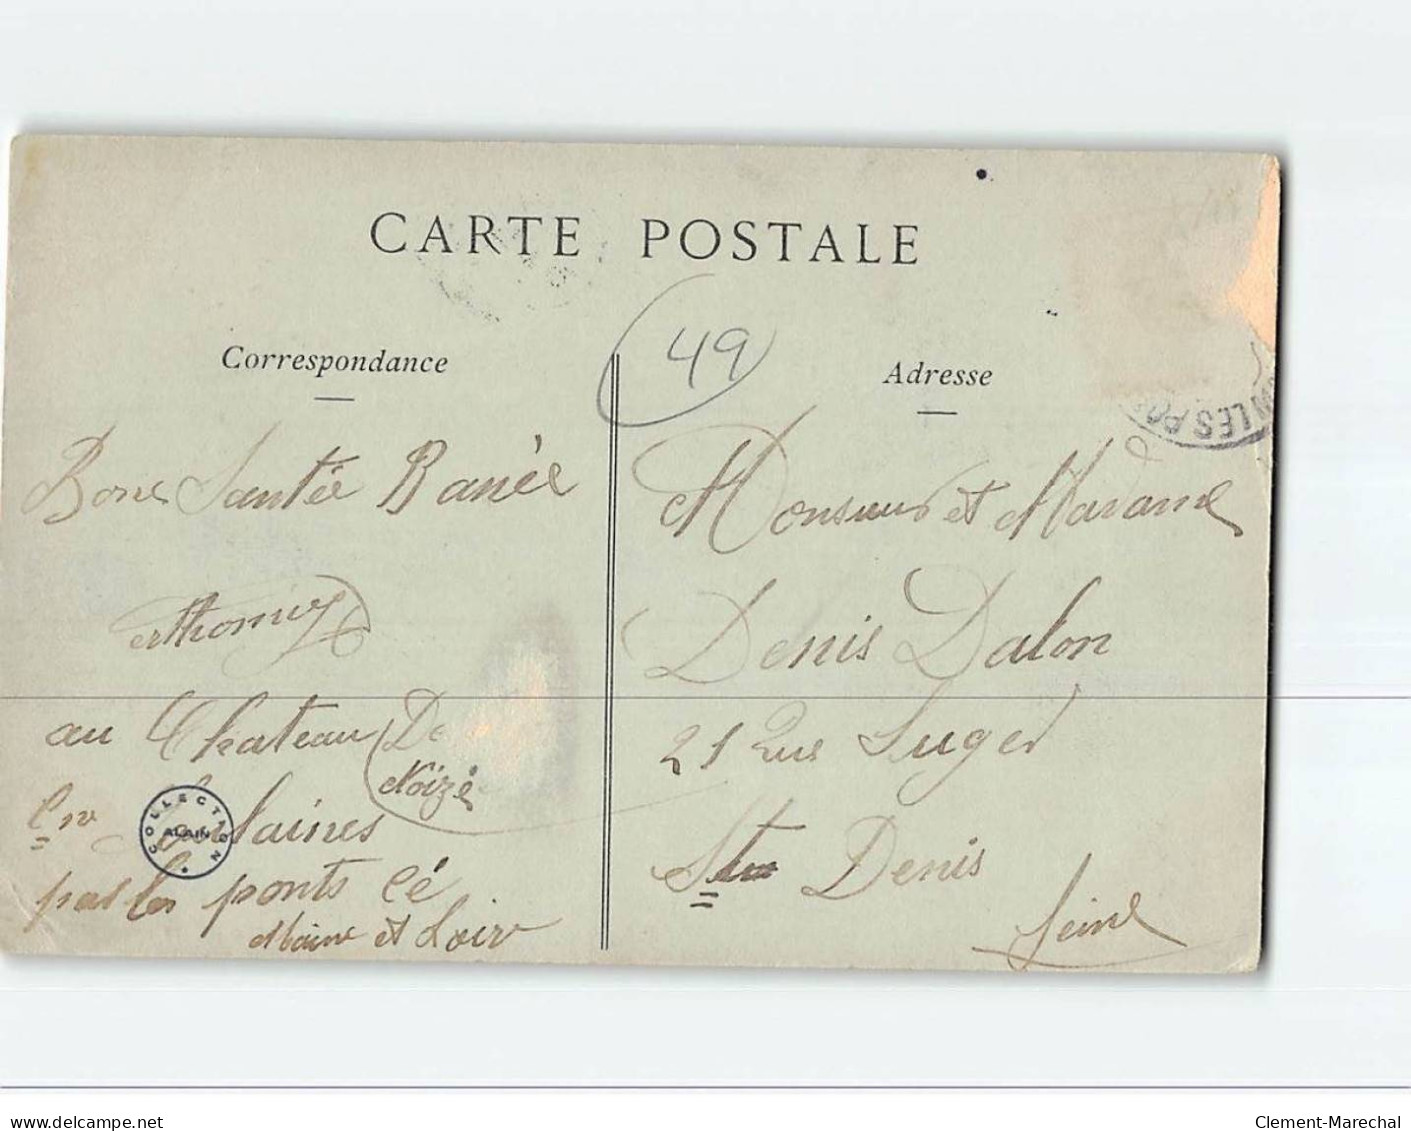 CARTE POSTALE
49
Correspondance
Adresse
N LES PO
Bone Santée Banée
au Chateau De
Noizé
en Soulaines
par les ponts Cé
Maine et Loire
COLLECTION
ALAIN
Monsieur et Madame
Denis Dalon
21 Rue Suger
St Denis
Seine
delcampe.net
Clement-Marechal